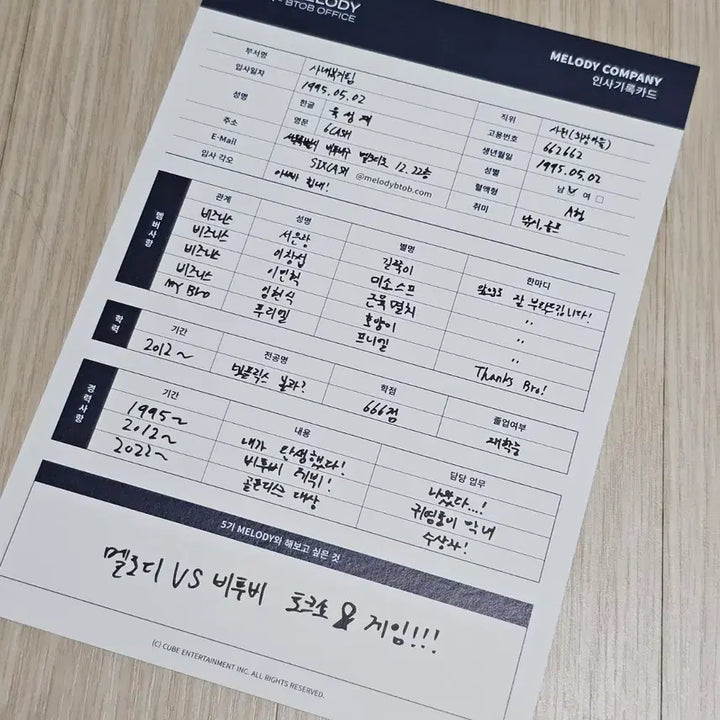 MELODY
BTOB OFFICE
MELODY COMPANY
인사기록카드
부서명 사내복지팀 직위 사원(희망이룸)
입사일자 1995.05.02 고용번호 662662
성명 한글 육성재 생년월일 1995.05.02
영문 6CA재 성별 남 여
주소 멜로디로 12, 22층 혈액형 A형
E-Mail SIXCA재 @melodybtob.com 취미 낚시,골프
입사 각오 아싸 힘내!
멤버사항
관계 성명 별명 한마디
비즈니스 서은광 길쭉이 앞으로 잘 부탁드립니다!
비즈니스 이창섭 미소스프 〃
비즈니스 이민혁 근육멸치 〃
비즈니스 임현식 호랑이 〃
My Bro 푸리엘 프니엘 Thanks Bro!
학력
기간 전공명 학점 졸업여부
2012~ 비글픽스 불과? 666점 재학중
경력사항
기간 내용 담당 업무
1995~ 내가 탄생했다! 나왔다...!
2012~ 비투비 데뷔! 귀염둥이 막내
2022~ 골든디스 대상 수상자!
5기 MELODY와 해보고 싶은 것
멜로디 VS 비투비 토크쇼 & 게임!!!
(C) CUBE ENTERTAINMENT INC. ALL RIGHTS RESERVED.